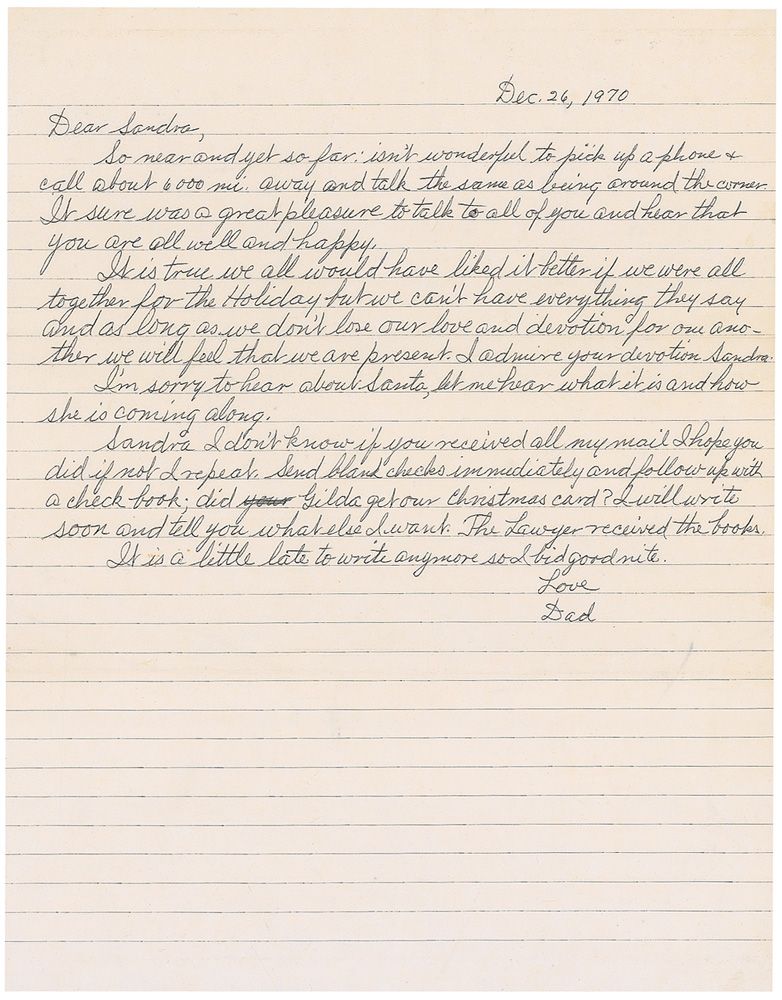 Dec. 26, 1970
Dear Sandra,
So near and yet so far: isn't wonderful to pick up a phone +
call about 6000 mi. away and talk the same as being around the corner.
It sure was a great pleasure to talk to all of you and hear that
you are all well and happy.
It is true we all would have liked it better if we were all
together for the Holiday but we can't have everything they say
and as long as we don't lose our love and devotion for one ano-
ther we will feel that we are present. I admire your devotion Sandra.
I'm sorry to hear about Santa, let me hear what it is and how
she is coming along.
Sandra I don't know if you received all my mail I hope you
did if not I repeat. Send blank checks immediately and follow up with
a check book; did your Gilda get our Christmas card? I will write
soon and tell you what else I want. The Lawyer received the books.
It is a little late to write anymore so I bid good nite.
Love
Dad